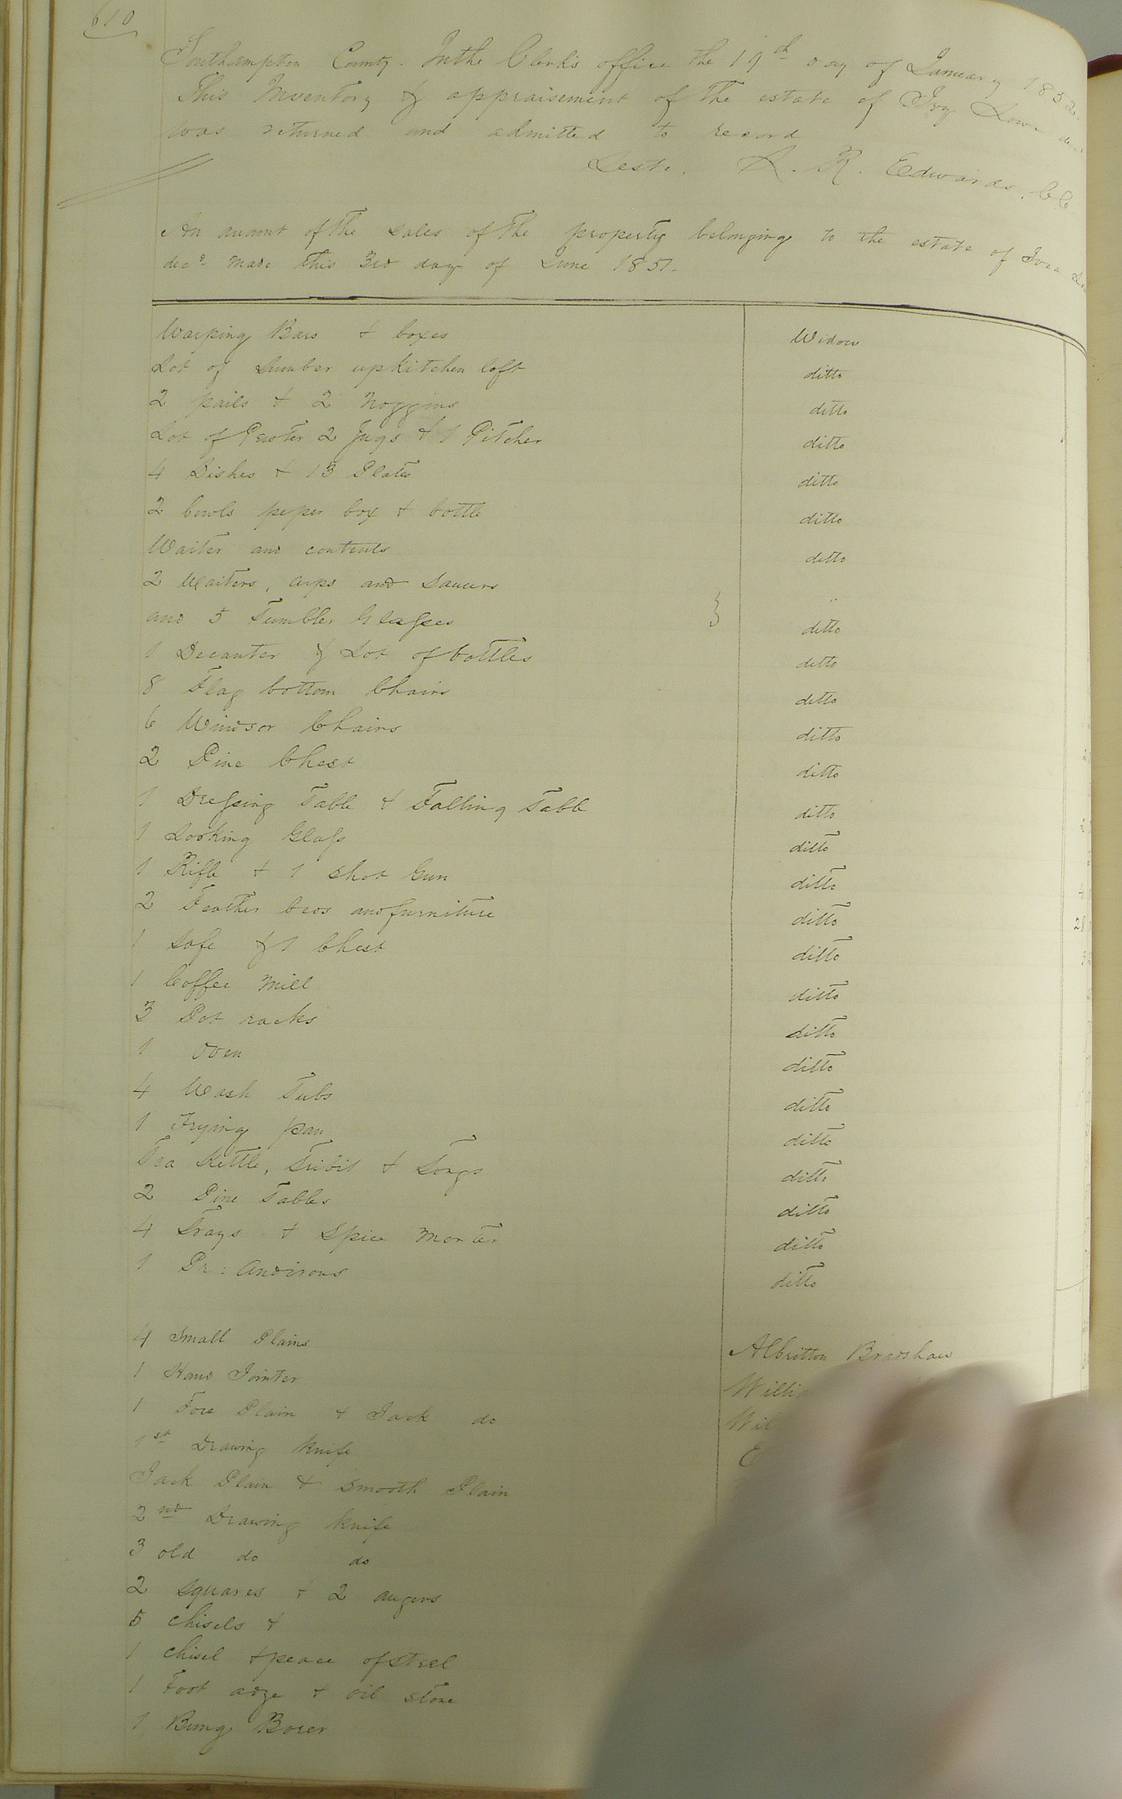 610
Southampton County. In the Clerk's office the 19th day of January 185
This Inventory & appraisement of the estate of Ivy
was returned and admitted to record
Teste. L. R. Edwards, CC
An amount of the sales of the property belonging to the estate of
decd. made this 3rd day of June 1851.
Warping Bars & boxes Widow
Lot of Lumber up Kitchen loft ditto
2 pails & 2 Noggins ditto
Lot of Pewter 2 Jugs & 1 Pitcher ditto
4 Dishes & 13 Plates ditto
2 bowls peper box & bottle ditto
Waiter and contents ditto
2 Waiters, cups and Saucers
and 5 Tumbler Glasses ditto
1 Decanter & Lot of bottles ditto
8 Flag bottom Chairs ditto
6 Windsor Chairs ditto
2 Pine Chest ditto
1 Dressing Table & Falling Table ditto
1 Looking Glass ditto
1 Rifle & 1 shot Gun ditto
2 Feather beds and furniture ditto
1 Safe & 1 Chest ditto
1 Coffee Mill ditto
3 Pot racks ditto
1 Oven ditto
4 Wash Tubs ditto
1 Frying pan ditto
Tea Kettle, Tribit & Tongs ditto
2 Pine Tables ditto
4 Trays & Spice Morter ditto
1 Pr: Andirons ditto
4 Small Plains Albritton Bradshaw
1 Hand Jointer Willi
1 Fore Plain & Jack do Wil
1st Drawing Knife
Jack Plain & smooth Plain
2nd Drawing Knife
3 old do do
2 squares & 2 augers
5 chisels &
1 chisel & peace of steel
1 Foot adze & oil stone
1 Bung Borer